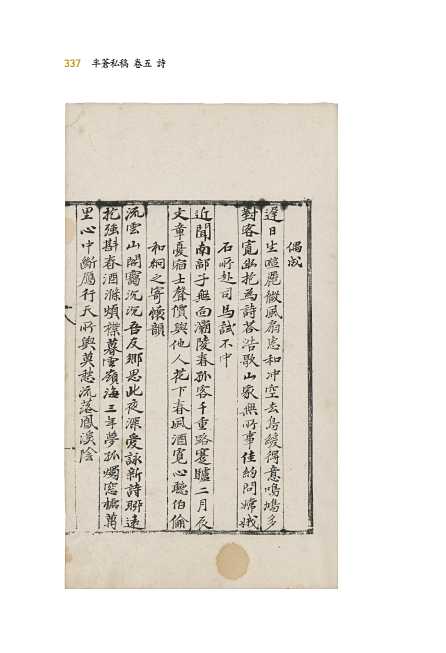 337 半蒼私稿 卷五 詩
偶成
遲日生暄麗微風扇惠和冲空去鳥緩得意鳴鳩多
對客寬幽抱爲詩荅浩歌山家無所事佳約問嫦娥
石所赴司馬試不中
近聞南部子無面灞陵春孤客千重路蹇驢二月辰
文章憂宿士聲價與他人花下春風酒寬心聽伯倫
和桐之寄懷韻
流雲山閣靄沉沉吾友鄉思此夜深愛詠新詩聊遠
抱強斟春酒滌煩襟暮雲嶺海三年夢孤燭窓櫳萬
里心中斷鴈行天所與莫愁流落鳳溪陰